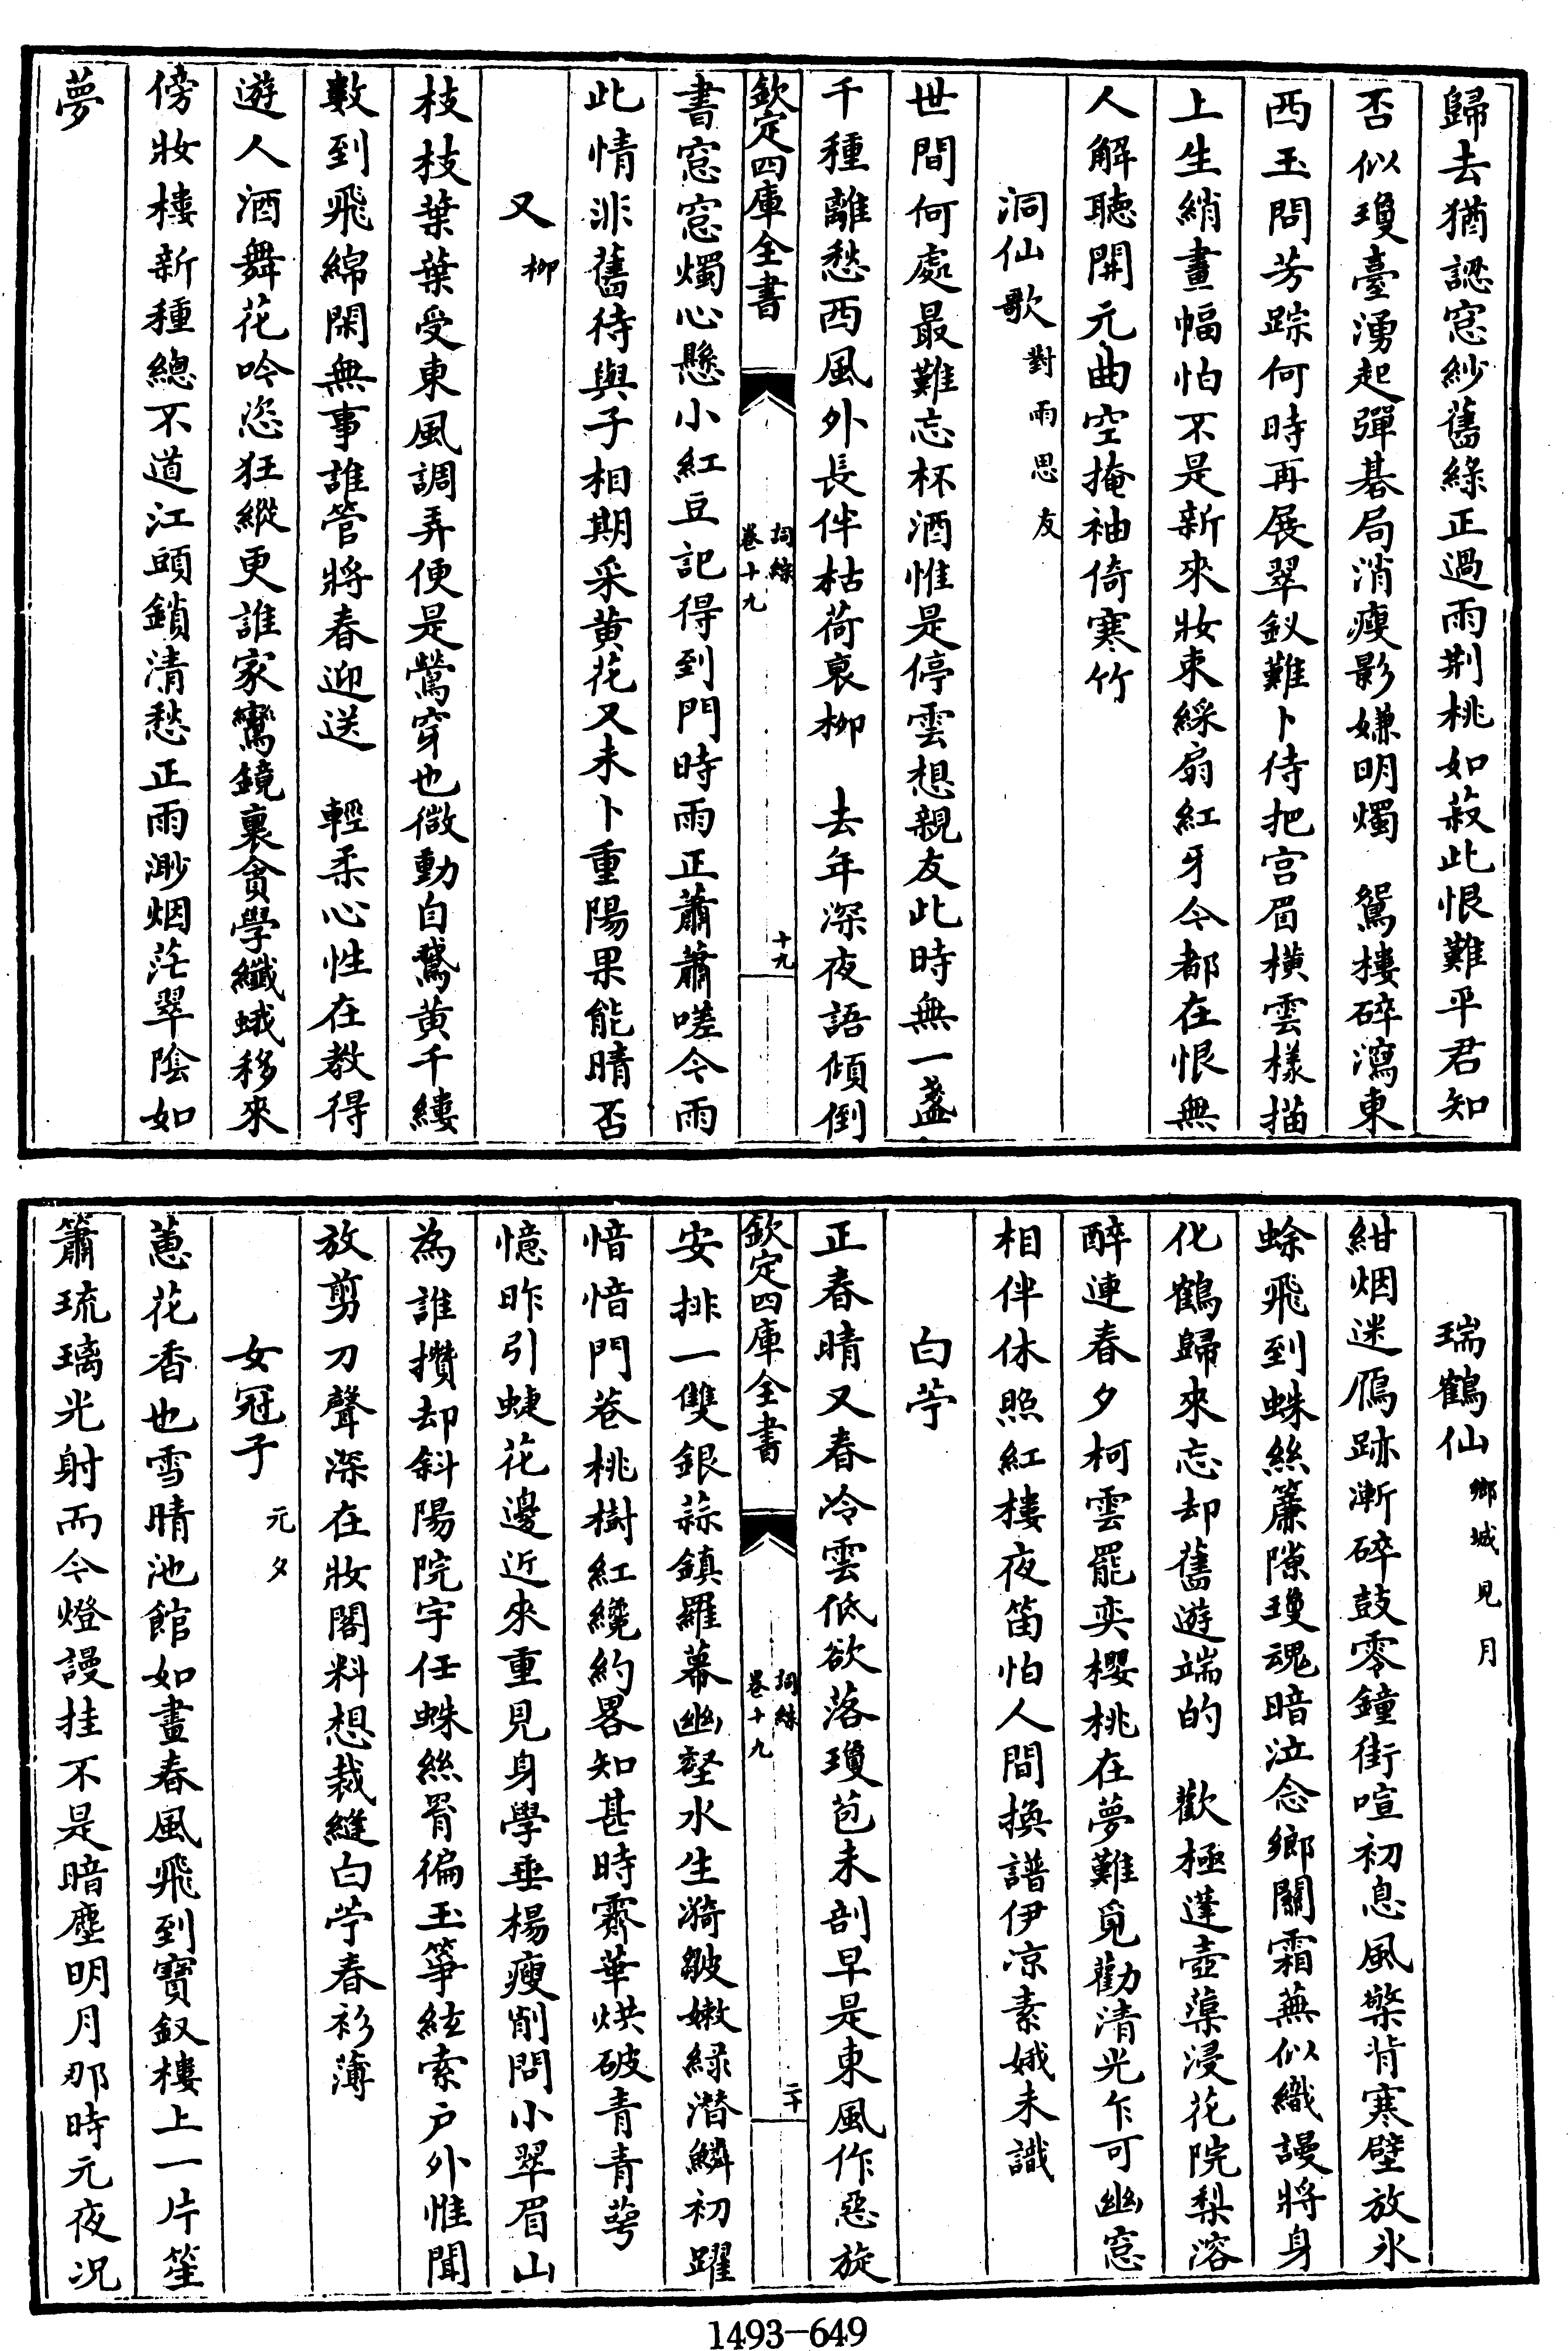 歸去猶認窓紗舊綠正過雨荆桃如菽此恨難平君知
否似瓊臺湧起彈棊局消瘦影嫌明燭　鴛樓碎瀉東
西玉問芳踪何時再展翠釵難卜待把宮眉横雲様描
上生綃畫幅怕不是新來妝束綵扇紅牙今都在恨無
人解聽開元曲空掩袖倚寒竹
洞仙歌 對雨思友
世間何處最難忘杯酒惟是停雲想親友此時無一盞
千種離愁西風外長伴枯荷衰柳　去年深夜語傾倒
欽定四庫全書　詞綜　卷十九　十九
書窓窓燭心懸小紅豆記得到門時雨正蕭蕭嗟今雨
此情非舊待與子相期采黄花又未卜重陽果能晴否
又 柳
枝枝葉葉受東風調弄便是鶯穿也微動自鵞黄千縷
數到飛綿閑無事誰管將春迎送　輕柔心性在教得
遊人酒舞花吟恣狂縱更誰家鸞鏡裏貪學纖蛾移來
傍妝樓新種總不道江頭鎖清愁正雨渺烟茫翠陰如
夢
瑞鶴仙 鄉城見月
紺烟迷鴈跡漸碎鼓零鐘街喧初息風檠背寒壁放氷
蜍飛到蛛絲簾隙瓊魂暗泣念鄉關霜蕪似織謾將身
化鶴歸來忘却舊遊端的　歡極蓬壺蕖浸花院梨溶
醉連春夕柯雲罷奕櫻桃在夢難覓勸清光乍可幽窓
相伴休照紅樓夜笛怕人間換譜伊凉素娥未識
白苧
正春晴又春冷雲低欲落瓊苞未剖早是東風作惡旋
欽定四庫全書　詞綜　卷十九　二十
安排一雙銀蒜鎮羅幕幽壑水生漪皺嫩綠潜鱗初躍
愔愔門巷桃樹紅纔約畧知甚時霽華烘破青青萼
憶昨引蜨花邊近來重見身學垂楊瘦削問小翠眉山
為誰攢却斜陽院宇任蛛絲罥徧玉箏絃索户外惟聞
放剪刀聲深在妝閣料想裁縫白苧春衫薄
女冠子 元夕
蕙花香也雪晴池館如畫春風飛到寶釵樓上一片笙
簫琉璃光射而今燈謾挂不是暗塵明月那時元夜况
1493-649